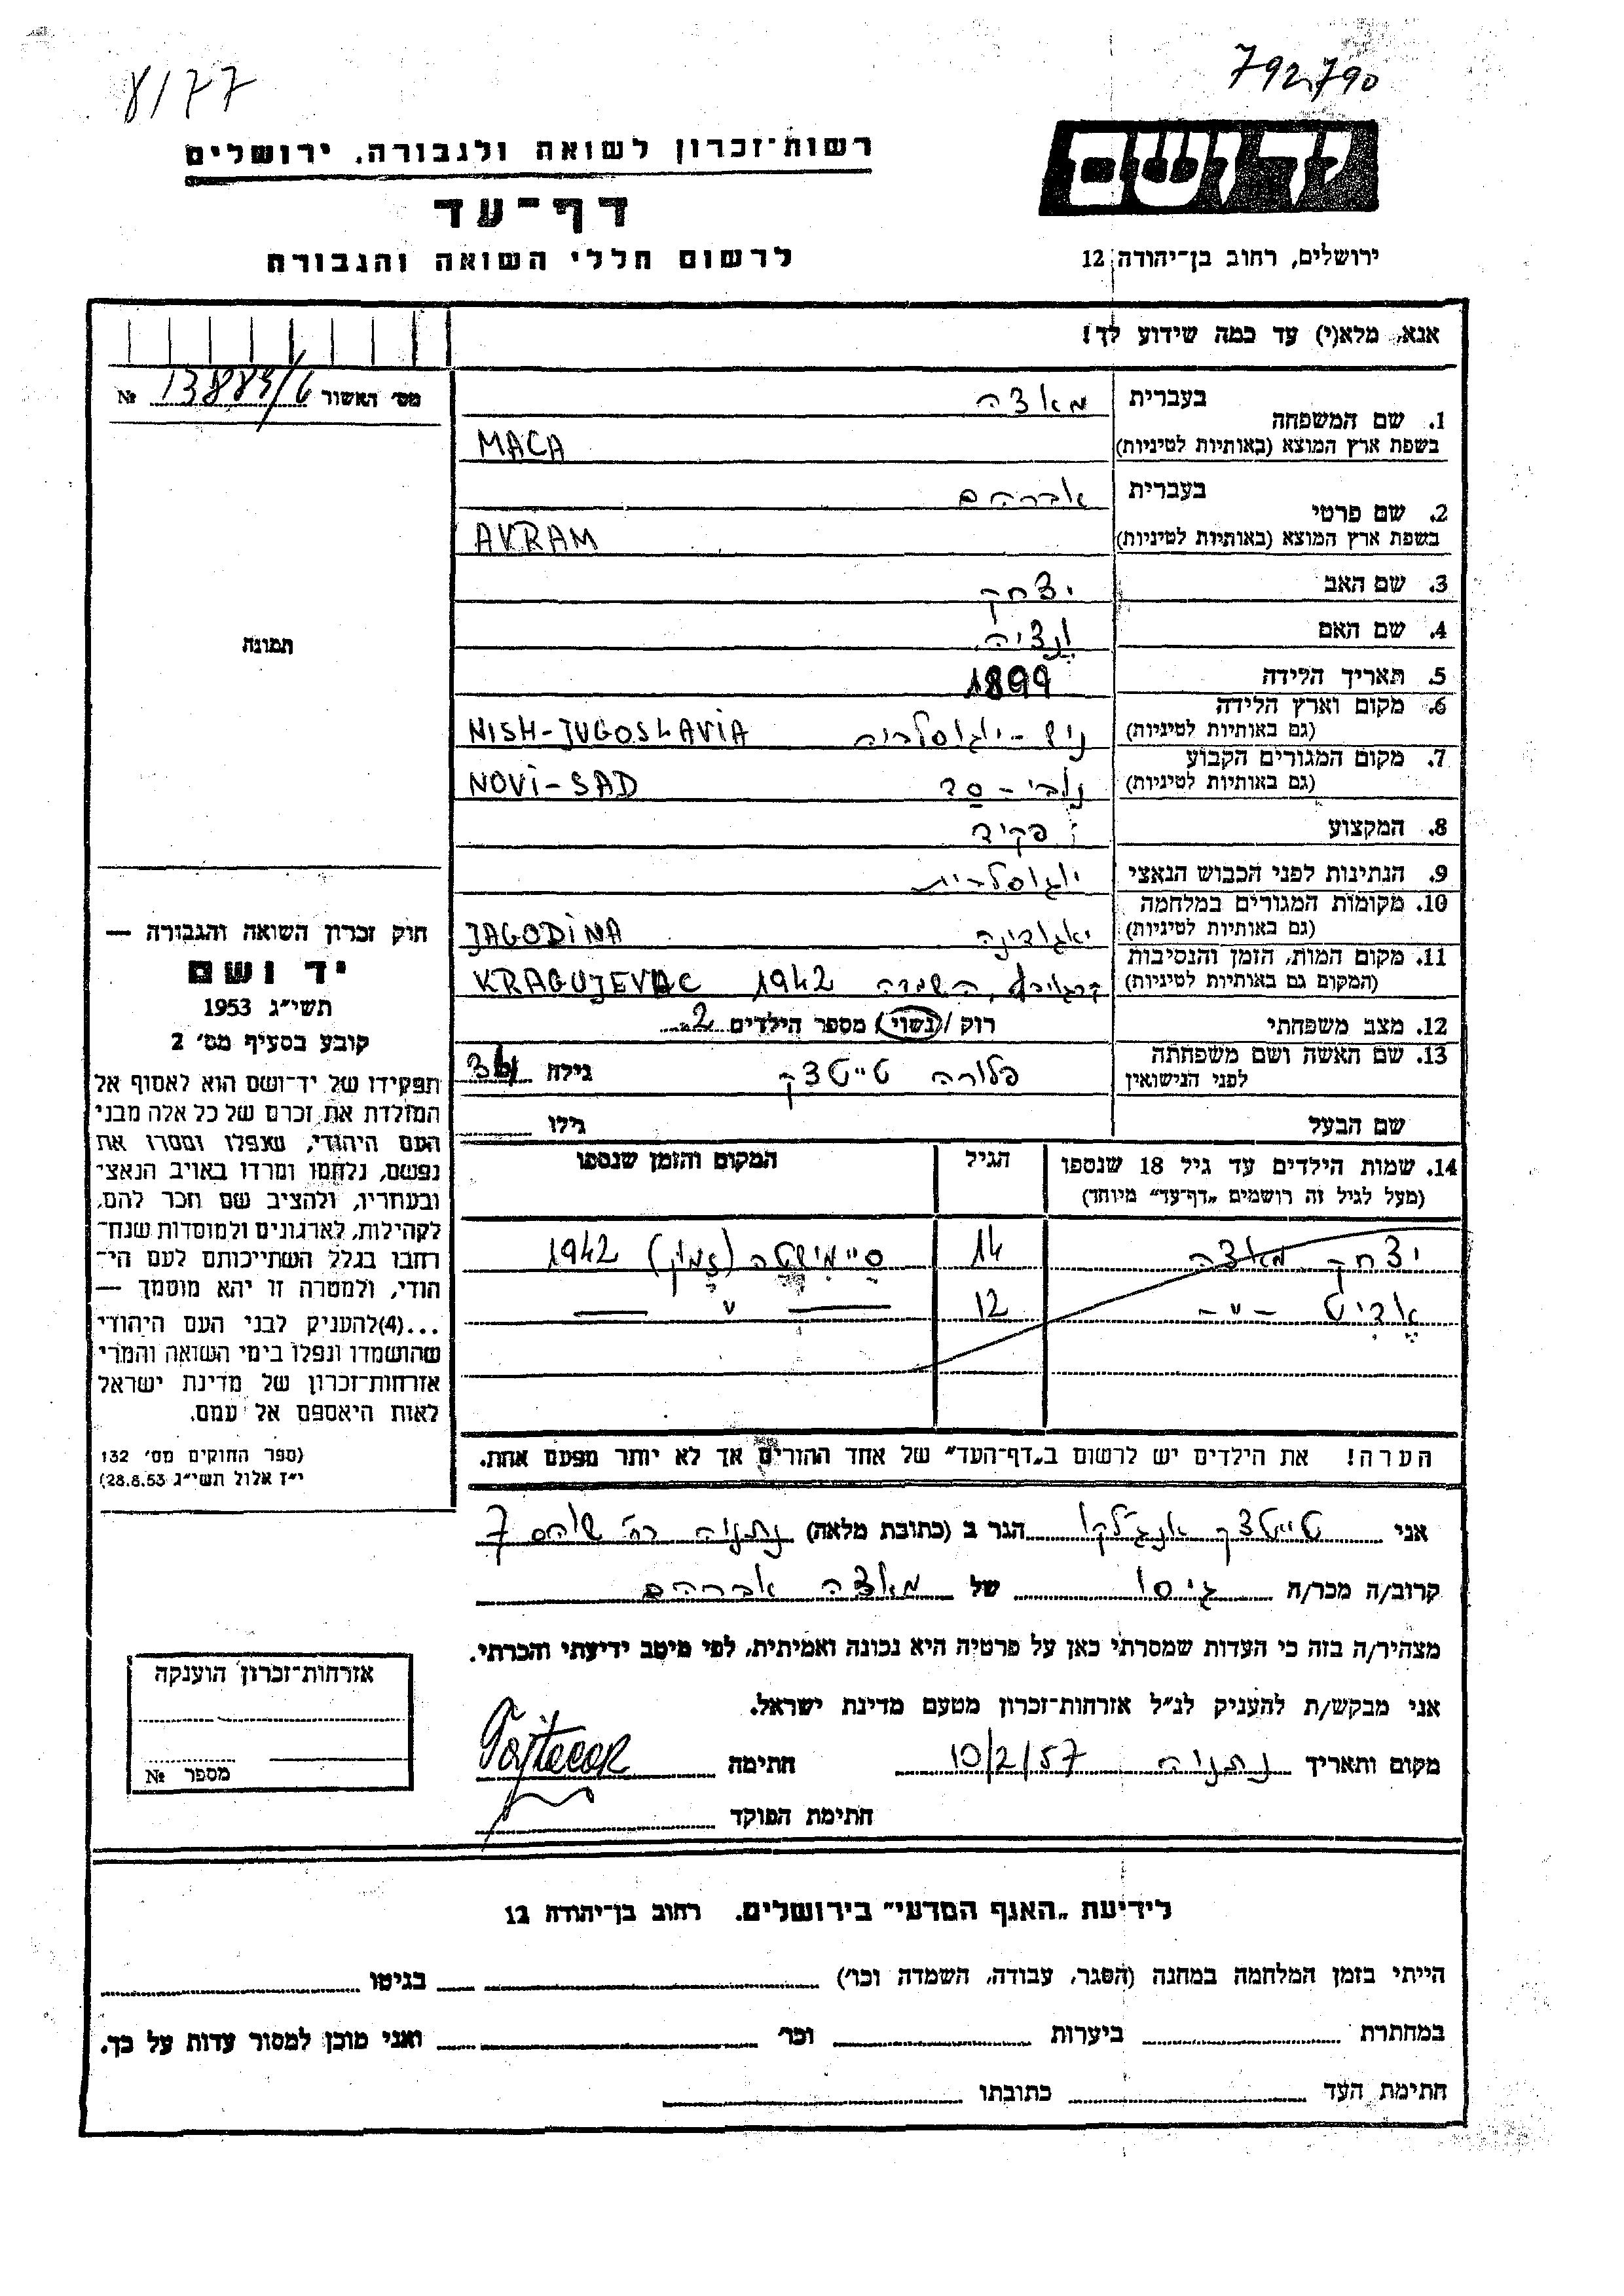 8/77
792,790
יד ושם
רשות־זכרון לשואה ולגבורה, ירושלים
דף־עד
לרשום חללי השואה והגבורה
ירושלים, רחוב בן־יהודה 12
אנא, מלא(י) עד כמה שידוע לך!
מס׳ האשור №
1. שם המשפחה
בעברית מאצה
בשפת ארץ המוצא (באותיות לטיניות) MACA
2. שם פרטי
בעברית אברהם
בשפת ארץ המוצא (באותיות לטיניות) AVRAM
3. שם האב יצחק
4. שם האם
5. תאריך הלידה 1899
6. מקום וארץ הלידה
(גם באותיות לטיניות) ניש - יוגוסלביה NISH-JUGOSLAVIA
7. מקום המגורים הקבוע
(גם באותיות לטיניות) נובי - סד NOVI-SAD
8. המקצוע פקיד
9. הנתינות לפני הכבוש הנאצי יוגוסלבית
10. מקומות המגורים במלחמה
(גם באותיות לטיניות) יאגודינה JAGODINA
11. מקום המות, הזמן והנסיבות
(המקום גם באותיות לטיניות) השמדה 1942 KRAGUJEVAC
12. מצב משפחתי רוק / נשוי / מספר הילדים 2
13. שם האשה ושם משפחתה
לפני הנישואין פלורה טייטצק גילה
שם הבעל גילו
14. שמות הילדים עד גיל 18 שנספו
(מעל לגיל זה רושמים „דף־עד״ מיוחד)
הגיל
המקום והזמן שנספו
יצחק מאצה 14 סיימישטה (זמון) 1942
אדיט - " - 12 — " —
הערה! את הילדים יש לרשום ב„דף־העד״ של אחד ההורים אך לא יותר מפעם אחת.
תמונה
חוק זכרון השואה והגבורה —
יד ושם
תשי״ג 1953
קובע בסעיף מס׳ 2
תפקידו של יד־ושם הוא לאסוף אל
המולדת את זכרם של כל אלה מבני
העם היהודי, שנפלו ומסרו את
נפשם, נלחמו ומרדו באויב הנאצי
ובעוזריו, ולהציב שם וזכר להם,
לקהילות, לארגונים ולמוסדות שנח־
רבו בגלל השתייכותם לעם הי־
הודי, ולמטרה זו יהא מוסמך —
...(4)להעניק לבני העם היהודי
שהושמדו ונפלו בימי השואה והמרי
אזרחות־זכרון של מדינת ישראל
לאות היאספם אל עמם.
(ספר החוקים מס׳ 132
י״ז אלול תשי״ג 28.8.53)
אני טייטצק הגר ב (כתובת מלאה) נתניה רח׳ שוהם 7
קרוב/ה מכר/ה גיסו של מאצה אברהם
מצהיר/ה בזה כי העדות שמסרתי כאן על פרטיה היא נכונה ואמיתית, לפי מיטב ידיעתי והכרתי.
אני מבקש/ת להעניק לנ״ל אזרחות־זכרון מטעם מדינת ישראל.
מקום ותאריך נתניה 10/2/57 חתימה
חתימת הפוקד
אזרחות־זכרון הוענקה
מספר №
לידיעת „האגף המדעי״ בירושלים. רחוב בן־יהודה 12
הייתי בזמן המלחמה במחנה (הסגר, עבודה, השמדה וכו׳) בגיטו
במחתרת ביערות וכו׳ ואני מוכן למסור עדות על כך.
חתימת העד כתובתו